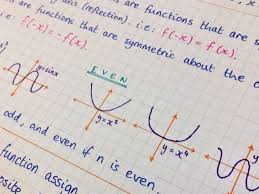 (reflection). i.e.: f(-x) = f(x).
are functions that are s
i.e.: f(-x) = -f(x).
are functions that are symmetric about the
EVEN
y=sinx
y=x²
y=x⁴
odd, and even if n is even.
function assign